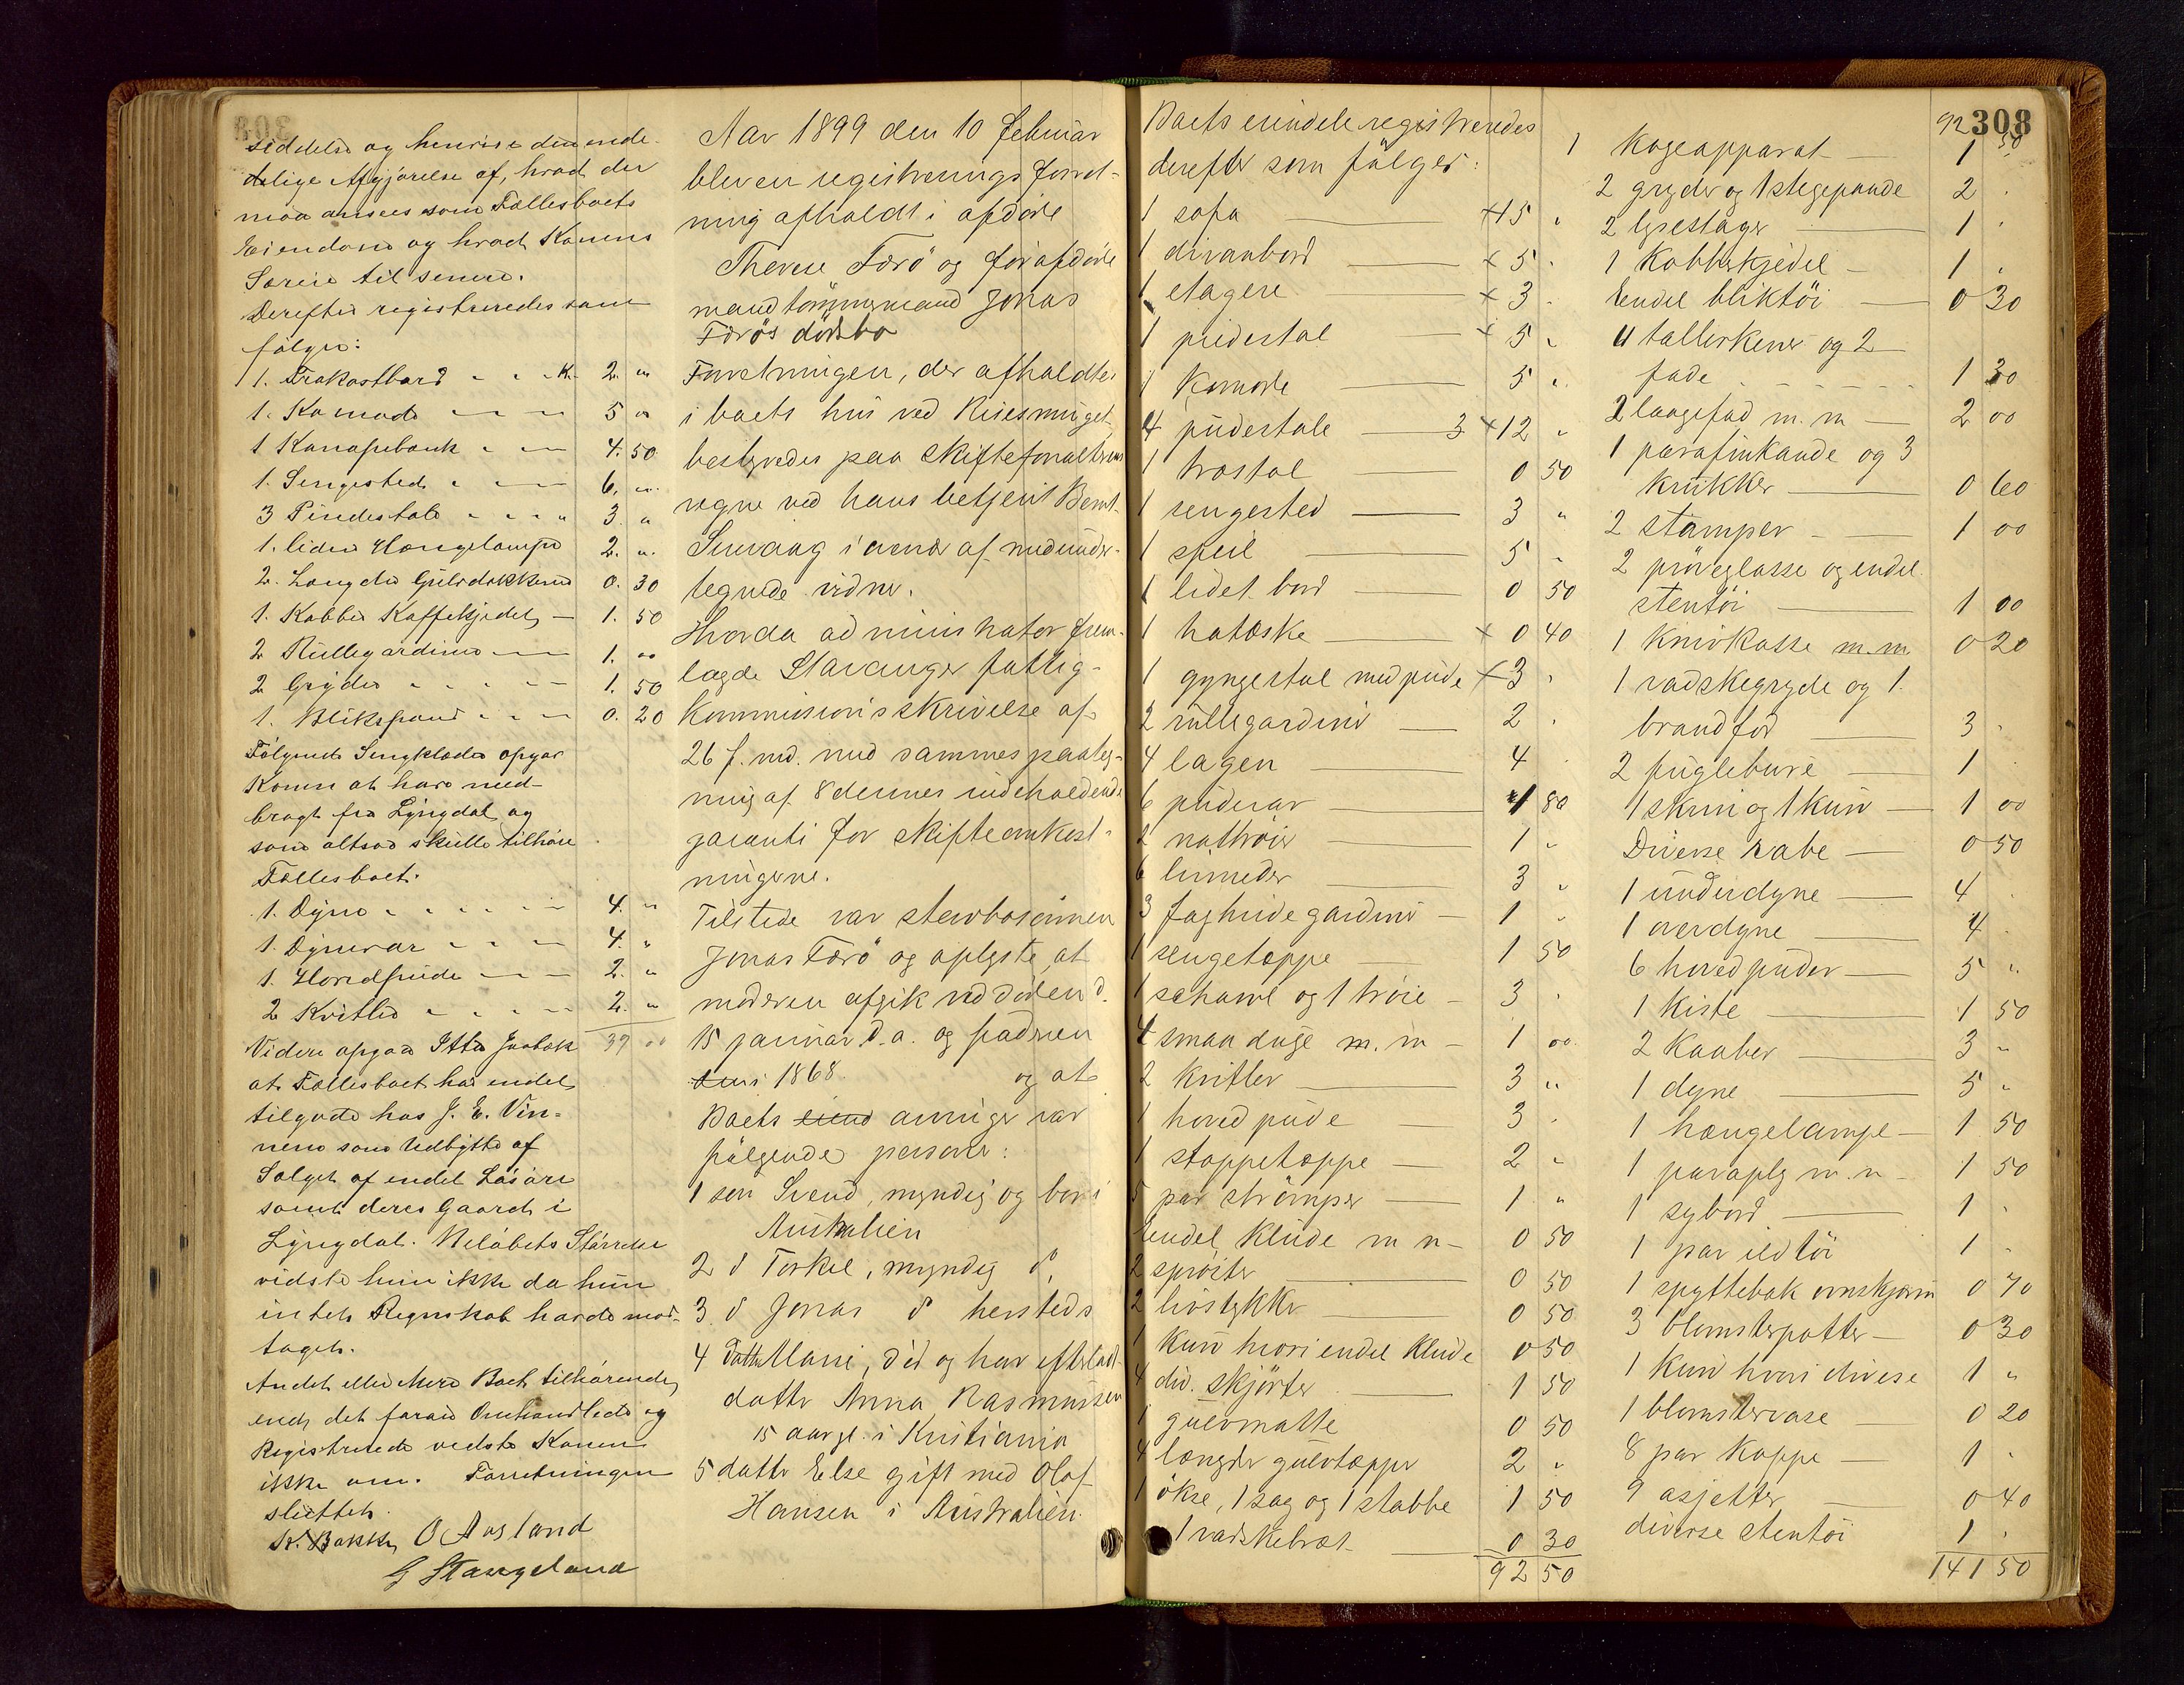 siddelse og henvise den ende-
delige Afgjörelse af, hvad der
maa ansees som Fællesboets
Eiendom og hvad Konens
Særeie til senere.
Derefter registreredes som
fölger:
1. Frokostbord - - K. 2. "
1. Komode - - - 5 "
1 Kanapebænk - - 4. 50
1. Sengested - - - 6. "
3 Pindestole - - - 3. "
1. liden Hængelampe 2. "
2. Længder Gulvdækkener 0. 30
1. Kobber Kaffekjedel - 1. 50
2 Rullegardiner - - 1. 00
2 Gryder - - - - 1. 50
1. Blikspand - - - 0. 20
Fölgende Sengklæder opgav
Konen at have med-
bragt fra Lyngdal og
som altsaa skulle tilhöre
Fællesboet.
1. Dyne - - - - - 4. "
1. Dynevar - - - 4. "
1. Hovedpude - - - 2. "
2 Kvitler - - - - 2. "
Videre opgav 39 00
at Fællesboet har endel
tilgode hos J. E. Vin-
nem som Udbytte af
Salget af endel Lösöre
samt deres Gaard i
Lyngdal. Belöbets Störrelse
vidste hun ikke da hun
intet Regnskab havde mod-
taget.
Andet eller Mere Boet tilhörende,
end det foran Omhandlede og
Registrerede vidste Konen
ikke om. Forretningen
sluttet.
K. Bakke O Aasland
G Stangeland
Aar 1899 den 10 februar
blev en registreringsforret-
ning afholdt i afdöde
Therese Færö og forafdöde
mand tömmermand Jonas
Færös dödsbo
Forretningen, der afholdtes
i boets hus ved
bestyredes paa skifteforvalterens
vegne ved hans betjent Bernt
i nærvær af medunder-
tegnede vidner.
Hvorda administrator frem-
lagde Stavanger fattig-
kommissions skrivelse af
26 f. md. med sammes paateg-
ning af 8 dennes indeholdende
garanti for skifteomkost-
ningerne.
Tilstede var stervbosönnen
Jonas Færö og oplyste, at
moderen afgik ved döden d.
15 januar d.a. og faderen
den i 1868. og at
Boets eiend arvinger var
fölgende personer:
1 sön Svend, myndig og bor i
Australien
2 d Torkel, myndig d.
3. d Jonas d hersteds
4 datter Marie, död og har efterladt
datter Anna Rasmussen
15 aar gl. i Kristiania
5 datter Else gift med Olaf
Hansen i Australien.
Boets eiendele registreredes
derefter som fölger:
1 sofa + 15 "
1 divanbord + 5 "
1 etagere + 3 "
1 pidestal + 5 "
1 Komode 5 "
4 pidestole 3 + 12 "
1 træstol 0 50
1 sengested 3 "
1 speil 5 "
1 lidet bord 0 50
1 hatæske + 0 40
1 gyngestol med pude + 3 "
2 rullegardiner 2 "
4 lagen 4
6 pudevar 1 80
2 nattröier 1 "
6 linneder 3 "
3 fag hvide gardiner 1 "
1 sengetæppe 1 50
1 schavl og 1 tröie 3 "
4 smaa duge m. m 1 00
2 kvitler 3 "
1 hovedpude 3 "
1 stoppetæppe 2 "
5 par strömper 1 "
Endel klude m m 0 50
2 spröiter 0 50
2 livstykker 0 50
1 kurv hvori endel klude 0 50
4 div. skjörter 1 50
1 gulvmatte 0 50
4 længder gulvtæpper 2 "
1 ökse, 1 sag og 1 stabbe 1 50
1 vadskebræt 0 30
92 50
308
92 50
1 kogeapparat 1 "
2 gryder og 1 stegepande 2 "
2 lysestager 1 "
1 Kobberkjedel 1 "
Endel bliktöi 0 30
4 tallerkener og 2
fade 1 30
2 laagefad m. m 2 00
1 parafinkande og 3
krukker 0 60
2 stamper 1 00
2 pröveglasse og endel
stentöi 1 00
1 knivkasse m. m 0 20
1 vadskegryde og 1.
brandfod 3 "
2 fuglebure 1
1 skrin og 1 kurv 1 00
Diverse rabe 0 50
1 underdyne 4
1 overdyne 4
6 hovedpuder 5 "
1 kiste 1 50
2 Kaaber 3 "
1 dyne 5 "
1 hængelampe 1 50
1 paraply m. m 1 50
1 sybord 1 "
1 par ildtöi 1 "
1 spyttebak ovnskjærm 0 70
3 blomsterpotter 0 30
1 kurv hvori diverse 1 "
1 blomstervase 0 20
8 par koppe 1 "
9 asjetter 0 40
diverse stentöi 1 "
141 50